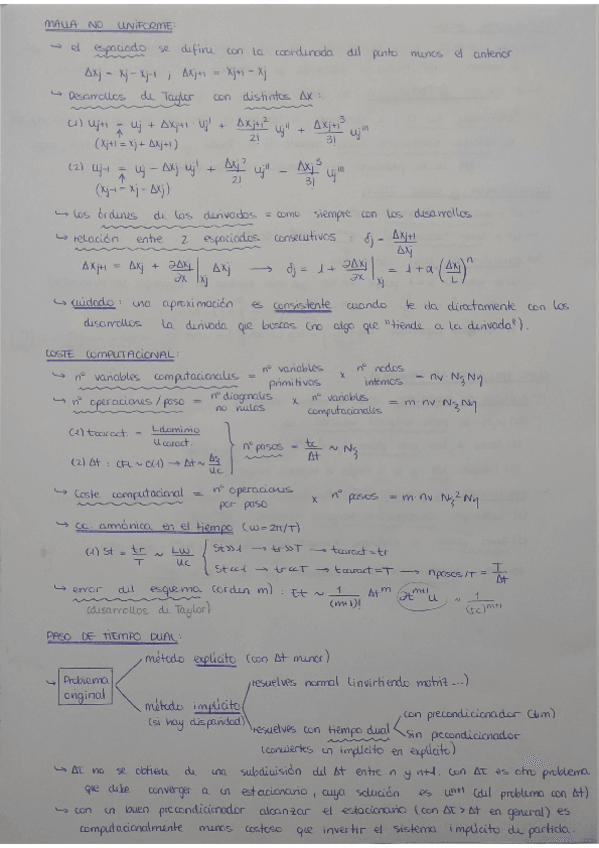 MALLA NO UNIFORME:
↳ el espaciado se define con la coordenada del punto menos el anterior
Δxj = xj - xj-1 ; Δxj+1 = xj+1 - xj
↳ Desarrollos de Taylor con distintos Δx:
(1) uj+1 = uj + Δxj+1 · uj' + Δxj+1²/2! uj'' + Δxj+1³/3! uj'''
(xj+1 = xj + Δxj+1)
(2) uj-1 = uj - Δxj · uj' + Δxj²/2! uj'' - Δxj³/3! uj'''
(xj-1 = xj - Δxj)
↳ los órdenes de las derivadas = como siempre con los desarrollos
↳ relación entre 2 espaciados consecutivos: δj = Δxj+1/Δxj
Δxj+1 = Δxj + ∂Δxj/∂x |xj Δxj → δj = 1 + ∂Δxj/∂x |xj = 1 + α (Δxj/L)^n
↳ cuidado: una aproximación es consistente cuando te da directamente con los
desarrollos la derivada que buscas (no algo que "tiende a la derivada").
COSTE COMPUTACIONAL:
↳ nº variables computacionales = nº variables primitivas × nº nodos internos = nv · Nξ Nη
↳ nº operaciones/paso = nº diagonales no nulas × nº variables computacionales = m · nv · Nξ Nη
(1) tcaract. = Ldominio/ucaract.
(2) Δt : CFL ~ O(1) → Δt ~ Δξ/uc
} nº pasos = tc/Δt ~ Nξ
↳ Coste computacional = nº operaciones por paso × nº pasos = m · nv · Nξ² Nη
↳ cc. armónica en el tiempo (ω=2π/T)
(1) St = tr/T ~ Lω/uc { St>>1 → tr>>T → tcaract=tr
St<<1 → tr<<T → tcaract=T → npasos/T = T/Δt
↳ error del esquema (orden m) : Et ~ 1/(m+1)! Δt^m ∂t^m+1 u ~ 1/(tc)^m+1
(desarrollos de Taylor)
PASO DE TIEMPO DUAL:
↳ Problema original
método explícito (con Δt menor)
método implícito (si hay disparidad)
resuelves normal (invirtiendo matriz...)
resuelves con tiempo dual
(conviertes un implícito en explícito)
con precondicionador (bm)
sin precondicionador
↳ Δτ no se obtiene de una subdivisión del Δt entre n y n+1. Con Δτ es otro problema
que debe converger a un estacionario, cuya solución es u^n+1 (del problema con Δt)
↳ con un buen precondicionador alcanzar el estacionario (con Δτ > Δt en general) es
computacionalmente menos costoso que invertir el sistema implícito de partida.